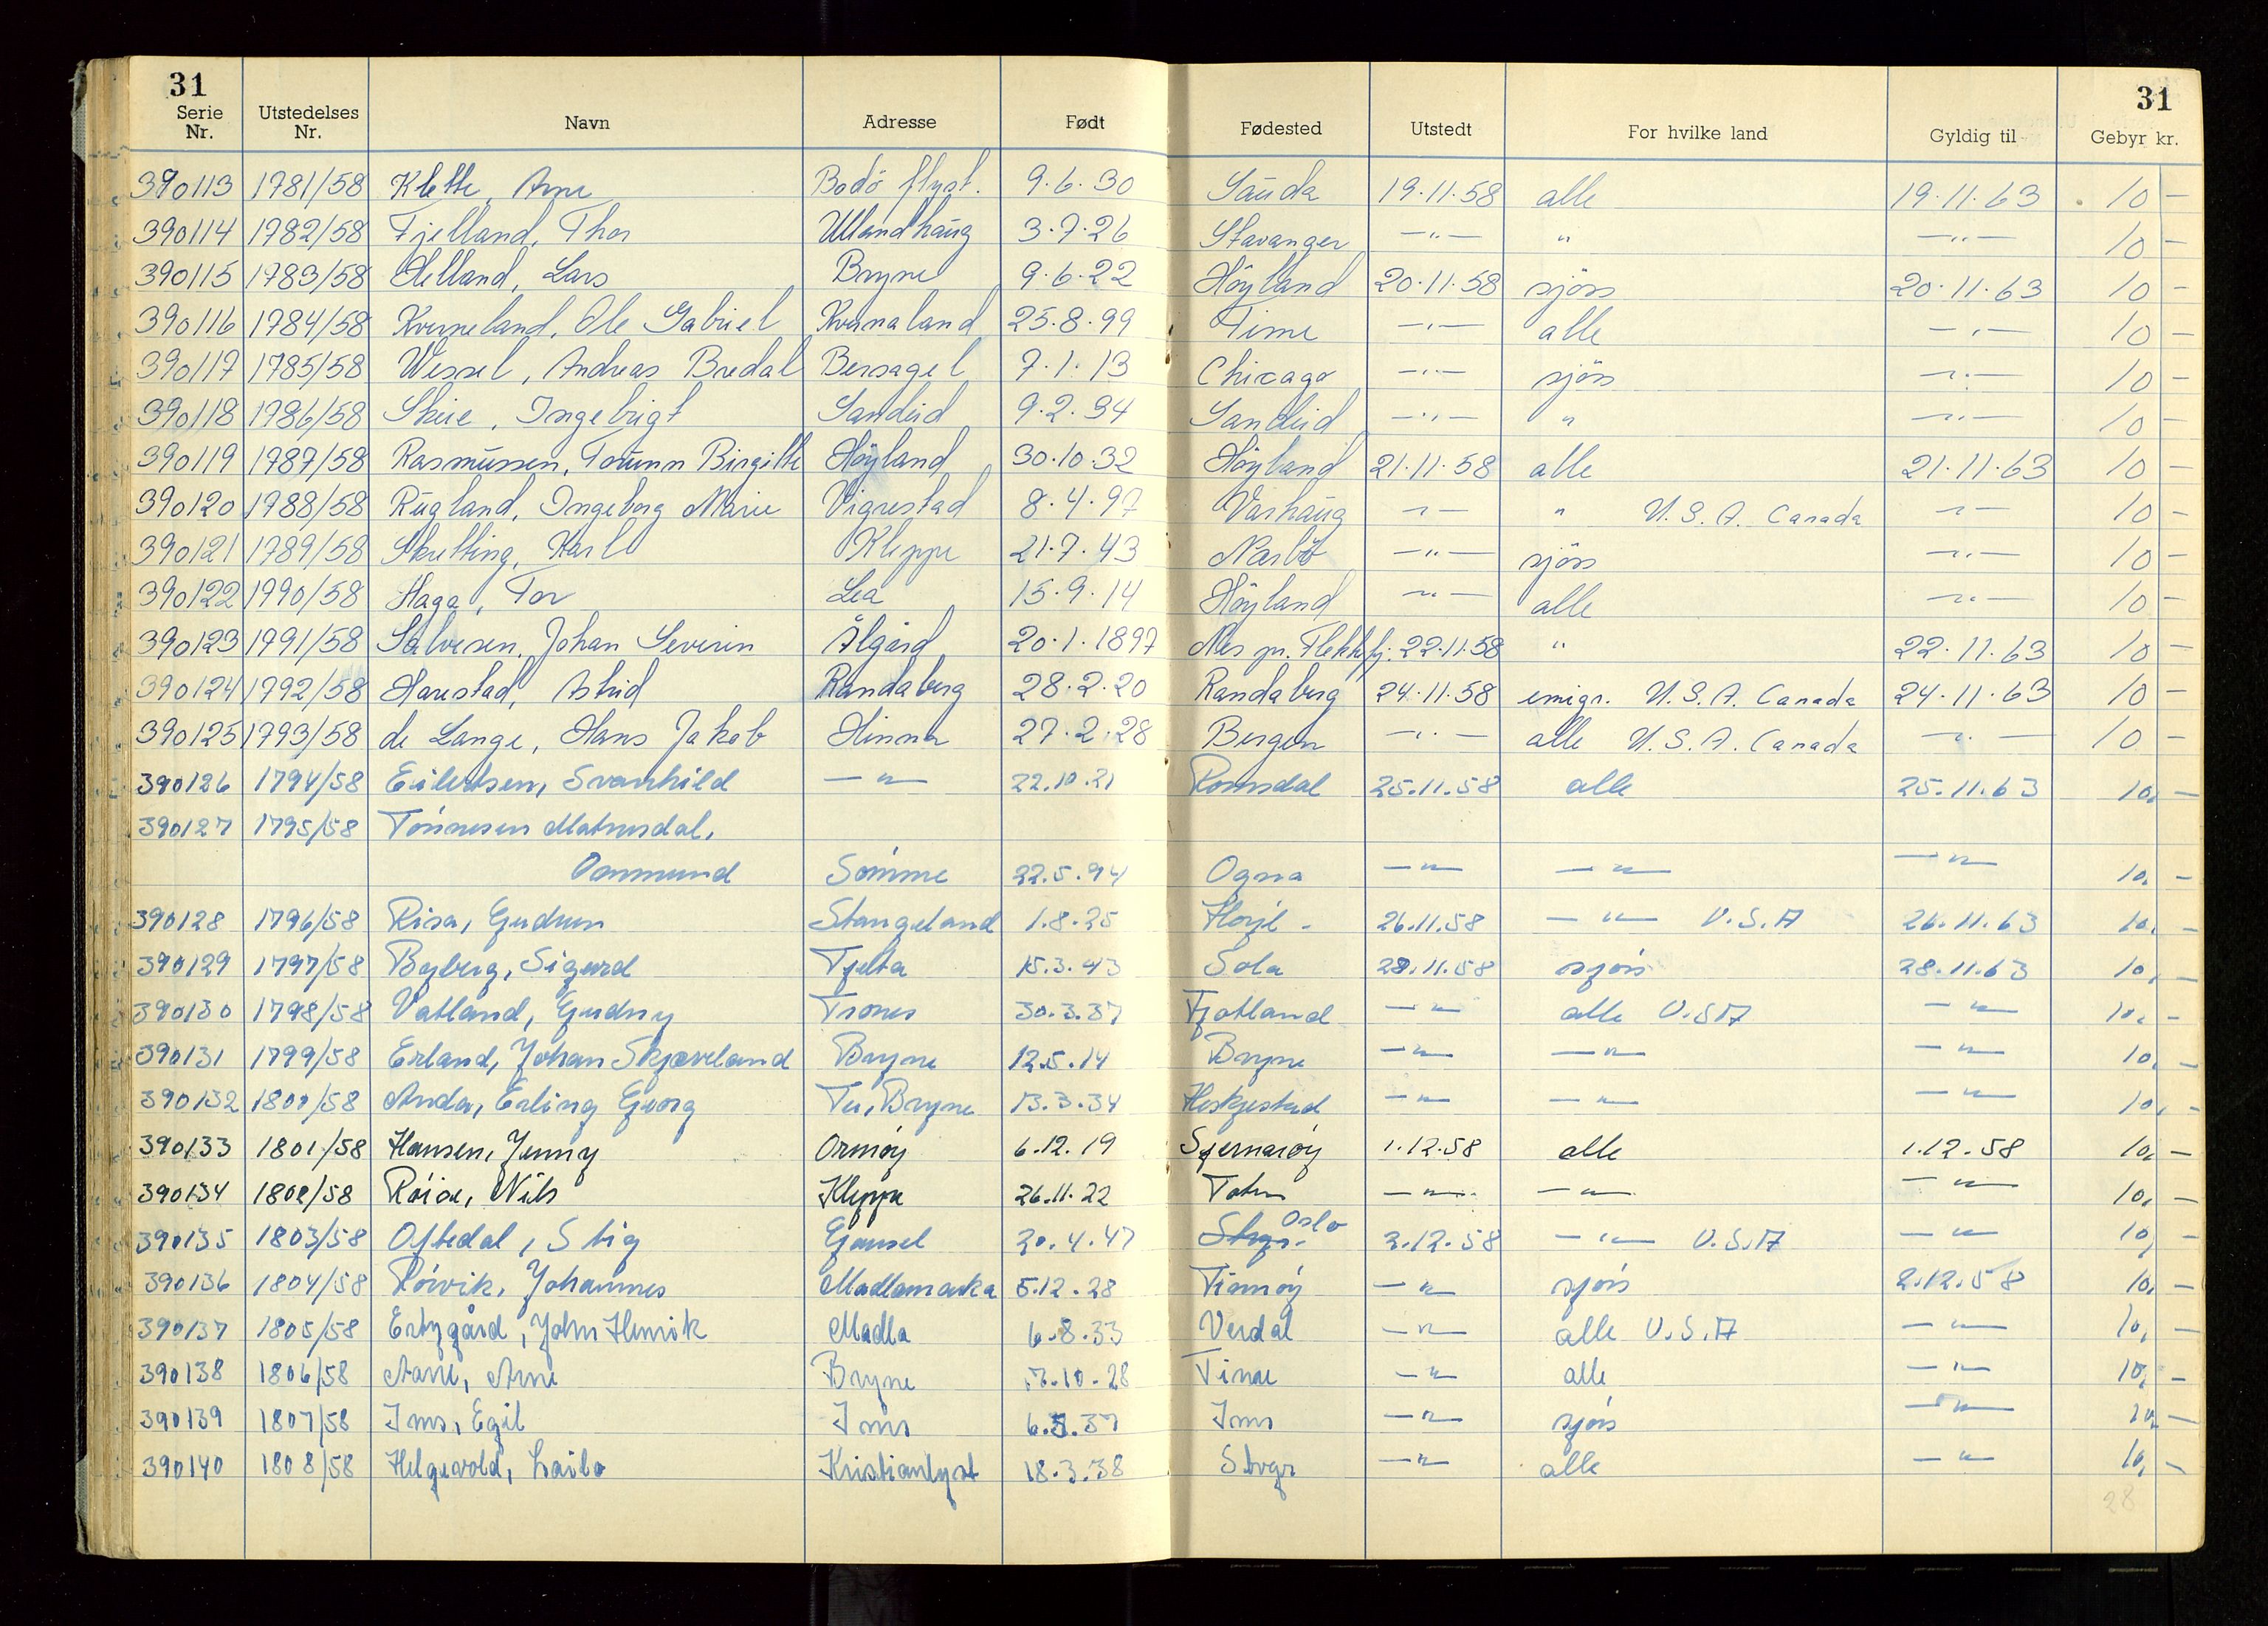 31 31
Serie Nr. Utstedelses Nr. Navn Adresse Født Fødested Utstedt For hvilke land Gyldig til Gebyr kr.
390113 1781/58 Klette, Arne Bodö flyst. 9.6.30 Sauda 19.11.58 alle 19.11.63 10 -
390114 1782/58 Fjelland, Thor Ullandhaug 3.7.26 Stavanger -"- " -"- 10 -
390115 1783/58 Helland, Lars Bryne 9.6.22 Höyland 20.11.58 sjöss 20.11.63 10 -
390116 1784/58 Kverneland, Ole Gabriel Kvernaland 25.8.99 Time -"- alle -"- 10 -
390117 1785/58 Wessel, Andreas Bredal Bersagel 7.1.13 Chicago -"- sjöss -"- 10 -
390118 1786/58 Skeie, Ingebrigt Sandeid 9.2.34 Sandeid -"- " -"- 10 -
390119 1787/58 Rasmussen, Torunn Birgitte Höyland 30.10.32 Höyland 21.11.58 alle 21.11.63 10 -
390120 1788/58 Rugland, Ingeborg Marie Vigrestad 8.4.97 Varhaug -"- " U.S.A. Canada -"- 10 -
390121 1789/58 Skretting, Karl Kleppe 21.7.43 Nærbö -"- sjöss -"- 10 -
390122 1990/58 Haga, Tor Lea 15.9.14 Höyland -"- alle -"- 10 -
390123 1791/58 Salvesen, Johan Severin Ålgård 20.1.1897 Nes pr. Flekkefj. 22.11.58 " 22.11.63 10 -
390124 1792/58 Harestad, Astrid Randaberg 28.2.20 Randaberg 24.11.58 emigr. U.S.A. Canada 24.11.63 10 -
390125 1793/58 de Lange, Hans Jakob Hinna 27.2.28 Bergen -"- alle U.S.A. Canada -"- 10 -
390126 1794/58 Eilertsen, Svanhild -"- 22.10.21 Romsdal 25.11.58 alle 25.11.63 10, -
390127 1795/58 Tönnesen Matnisdal,
Ommund Sömme 22.5.94 Ogna -"- -"- -"- 10, -
390128 1796/58 Risa, Gudrun Stangeland 1.8.25 Höyl. 26.11.58 -"- U.S.A 26.11.63 10, -
390129 1797/58 Byberg, Sigurd Tjelta 15.3.43 Sola 28.11.58 sjöss 28.11.63 10, -
390130 1798/58 Vatland, Gudny Trones 30.3.37 Fjotland -"- alle U.SA -"- 10, -
390131 1799/58 Erland, Johan Skjæveland Bryne 12.5.14 Bryne -"- -"- -"- 10, -
390132 1800/58 Anda, Erling Georg Tu, Bryne 13.3.34 Heskjestad -"- -"- -"- 10, -
390133 1801/58 Hansen, Jenny Ormöy 6.12.19 Sjernaröy 1.12.58 alle 1.12.58 10, -
390134 1802/58 Nils Kleppe 26.11.22 -"- -"- -"- 10, -
390135 1803/58 Oftedal, Stig Gausel 20.4.47 Stvgr. Oslo 2.12.58 -"- U.S.A -"- 10, -
390136 1804/58 Röivik, Johannes Madlamarka 5.12.28 -"- sjöss 2.12.58 10, -
390137 1805/58 John Henrik Madla 6.8.33 Verdal -"- alle U.S.A -"- 10, -
390138 1806/58 Arne Bryne 7.10.28 Time -"- alle -"- 10, -
390139 1807/58 Ims, Egil Ims 6.5.37 Ims -"- sjöss -"- 10, -
390140 1808/58 Helgevold, Laila Kristianlyst 18.3.38 Stvgr -"- alle -"- 10, -
28